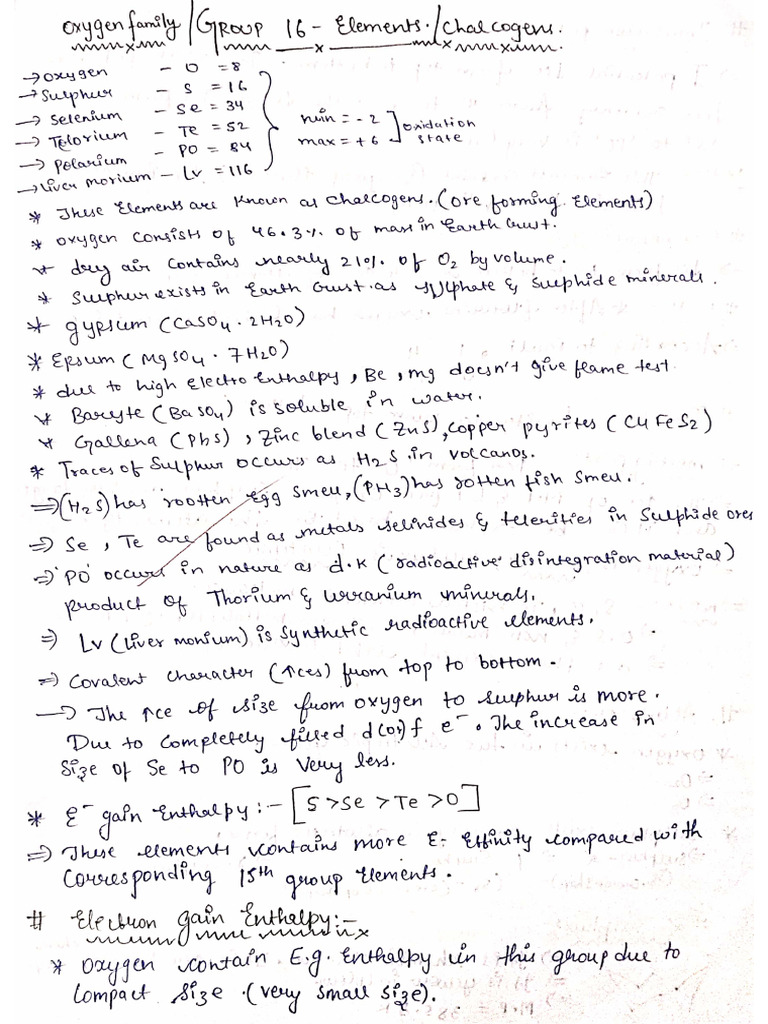 Oxygen family / GROUP 16 - Elements. / Chalcogens.
→ Oxygen - O = 8
→ Sulphur - S = 16
→ Selenium - Se = 34
→ Telorium - Te = 52
→ Polarium - PO = 84
→ Liver morium - Lv = 116
min = - 2
max = + 6
] oxidation state
* These Elements are known as Chalcogens. (ore forming Elements)
* oxygen consists of 46.3% of mass in Earth Crust.
* dry air contains nearly 21% of O2 by volume.
* Sulphur exists in Earth Crust as sulphate & sulphide minerals.
* gypsum (CaSO4 . 2H2O)
* Epsum (MgSO4 . 7H2O)
* due to high electro Enthalpy, Be, mg doesn't give flame test
* Baryte (BaSO4) is soluble in water.
* Gallena (PbS), Zinc blend (ZnS), copper pyrites (CuFeS2)
* Traces of Sulphur occurs as H2S in volcanos.
⇒ (H2S) has rootten egg smell, (PH3) has rotten fish smell.
⇒ Se, Te are found as metals selinides & telerities in Sulphide ores
⇒ 'PO' occurs in nature as d.k (radioactive disintegration material)
product of Thorium & urranium minerals.
⇒ Lv (Liver monium) is synthetic radioactive elements.
⇒ Covalent character (↑ces) from top to bottom.
→ The ↑ce of size from oxygen to sulphur is more.
Due to completely filled d(or)f e-. The increase in
size of Se to PO is very less.
* E- gain Enthalpy :- [S > Se > Te > O]
⇒ These elements contains more E- Effinity compared with
Corresponding 15th group Elements.
# Electron gain Enthalpy:-
* Oxygen contain E.g. Enthalpy in this group due to
Compact size. (very small size).